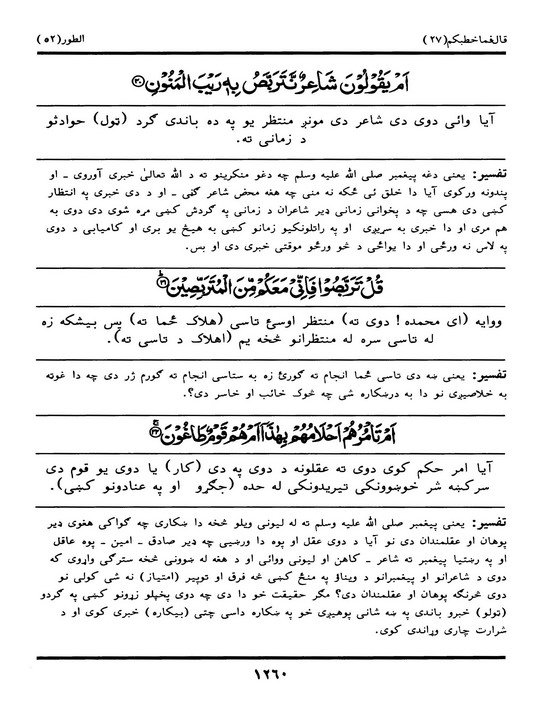 قال فما خطبكم (٢٧) الطور (٥٢)
اَمْ يَقُوْلُوْنَ شَاعِرٌ نَّتَرَبَّصُ بِهٖ رَيْبَ الْمَنُوْنِ ﴿٣٠﴾
آیا وائی دوی دی شاعر دی مونږ منتظر یو په ده باندی ګرد (ټول) حوادثو
د زمانی ته.
تفسیر: یعنی دغه پیغمبر صلی الله علیه وسلم چه دغو منکرینو ته د الله تعالیٰ خبری آوروی ـ او
پندونه ورکوی آیا دا خلق ئی ځکه نه منی چه هغه محض شاعر ګڼی ـ او د دی خبری په انتظار
کښی دی هسی چه د پخوانی زمانی ډیر شاعران د زمانی په ګردش کښی مړه شوی دی دوی به
هم مری او دا خبری به سړیږی او په راتلونکیو زمانو کښی به هیڅ یو بری او کامیابی د دوی
په لاس نه ورځی او دا یواځی د څو ورځو موقتی خبری دی او بس.
قُلْ تَرَبَّصُوْا فَاِنِّىْ مَعَكُمْ مِّنَ الْمُتَرَبِّصِيْنَ ﴿٣١﴾
ووایه (ای محمده! دوی ته) منتظر اوسئ تاسی (هلاک ځما ته) پس بیشکه زه
له تاسی سره له منتظرانو څخه یم (اهلاک د تاسی ته).
تفسیر: یعنی ښه دی تاسی ځما انجام ته ګورئ زه به ستاسی انجام ته ګورم ژر دی چه دا غوټه
به خلاصیږی نو دا به درښکاره شی چه څوک خائب او خاسر دی؟.
اَمْ تَاْمُرُهُمْ اَحْلَامُهُمْ بِهٰذَآ اَمْ هُمْ قَوْمٌ طَاغُوْنَ ﴿٣٢﴾
آیا امر حکم کوی دوی ته عقلونه د دوی په دی (کار) یا دوی یو قوم دی
سرکښه شر خوښوونکی تیریدونکی له حده (جګړو او په عنادونو کښی).
تفسیر: یعنی پیغمبر صلی الله علیه وسلم ته له لیونی ویلو څخه دا ښکاری چه ګواکی هغوی ډیر
پوهان او عقلمندان دی نو آیا د دوی عقل او پوه دا ورښیی چه ډیر صادق ـ امین ـ پوه عاقل
او په رښتیا پیغمبر ته شاعر ـ کاهن او لیونی ووائی او د هغه له ښوونی څخه سترګی واړوی که
دوی د شاعرانو او پیغمبرانو د ویناؤ په منځ کښی څه فرق او توپیر (امتیاز) نه شی کولی نو
دوی څرنګه پوهان او عقلمندان دی؟ مګر حقیقت خو دا دی چه دوی پخپلو زړونو کښی په ګردو
(ټولو) خبرو باندی په ښه شانی پوهیږی خو په ښکاره داسی چتی (بیکاره) خبری کوی او د
شرارت چاری وړاندی کوی.
١٢٦٠